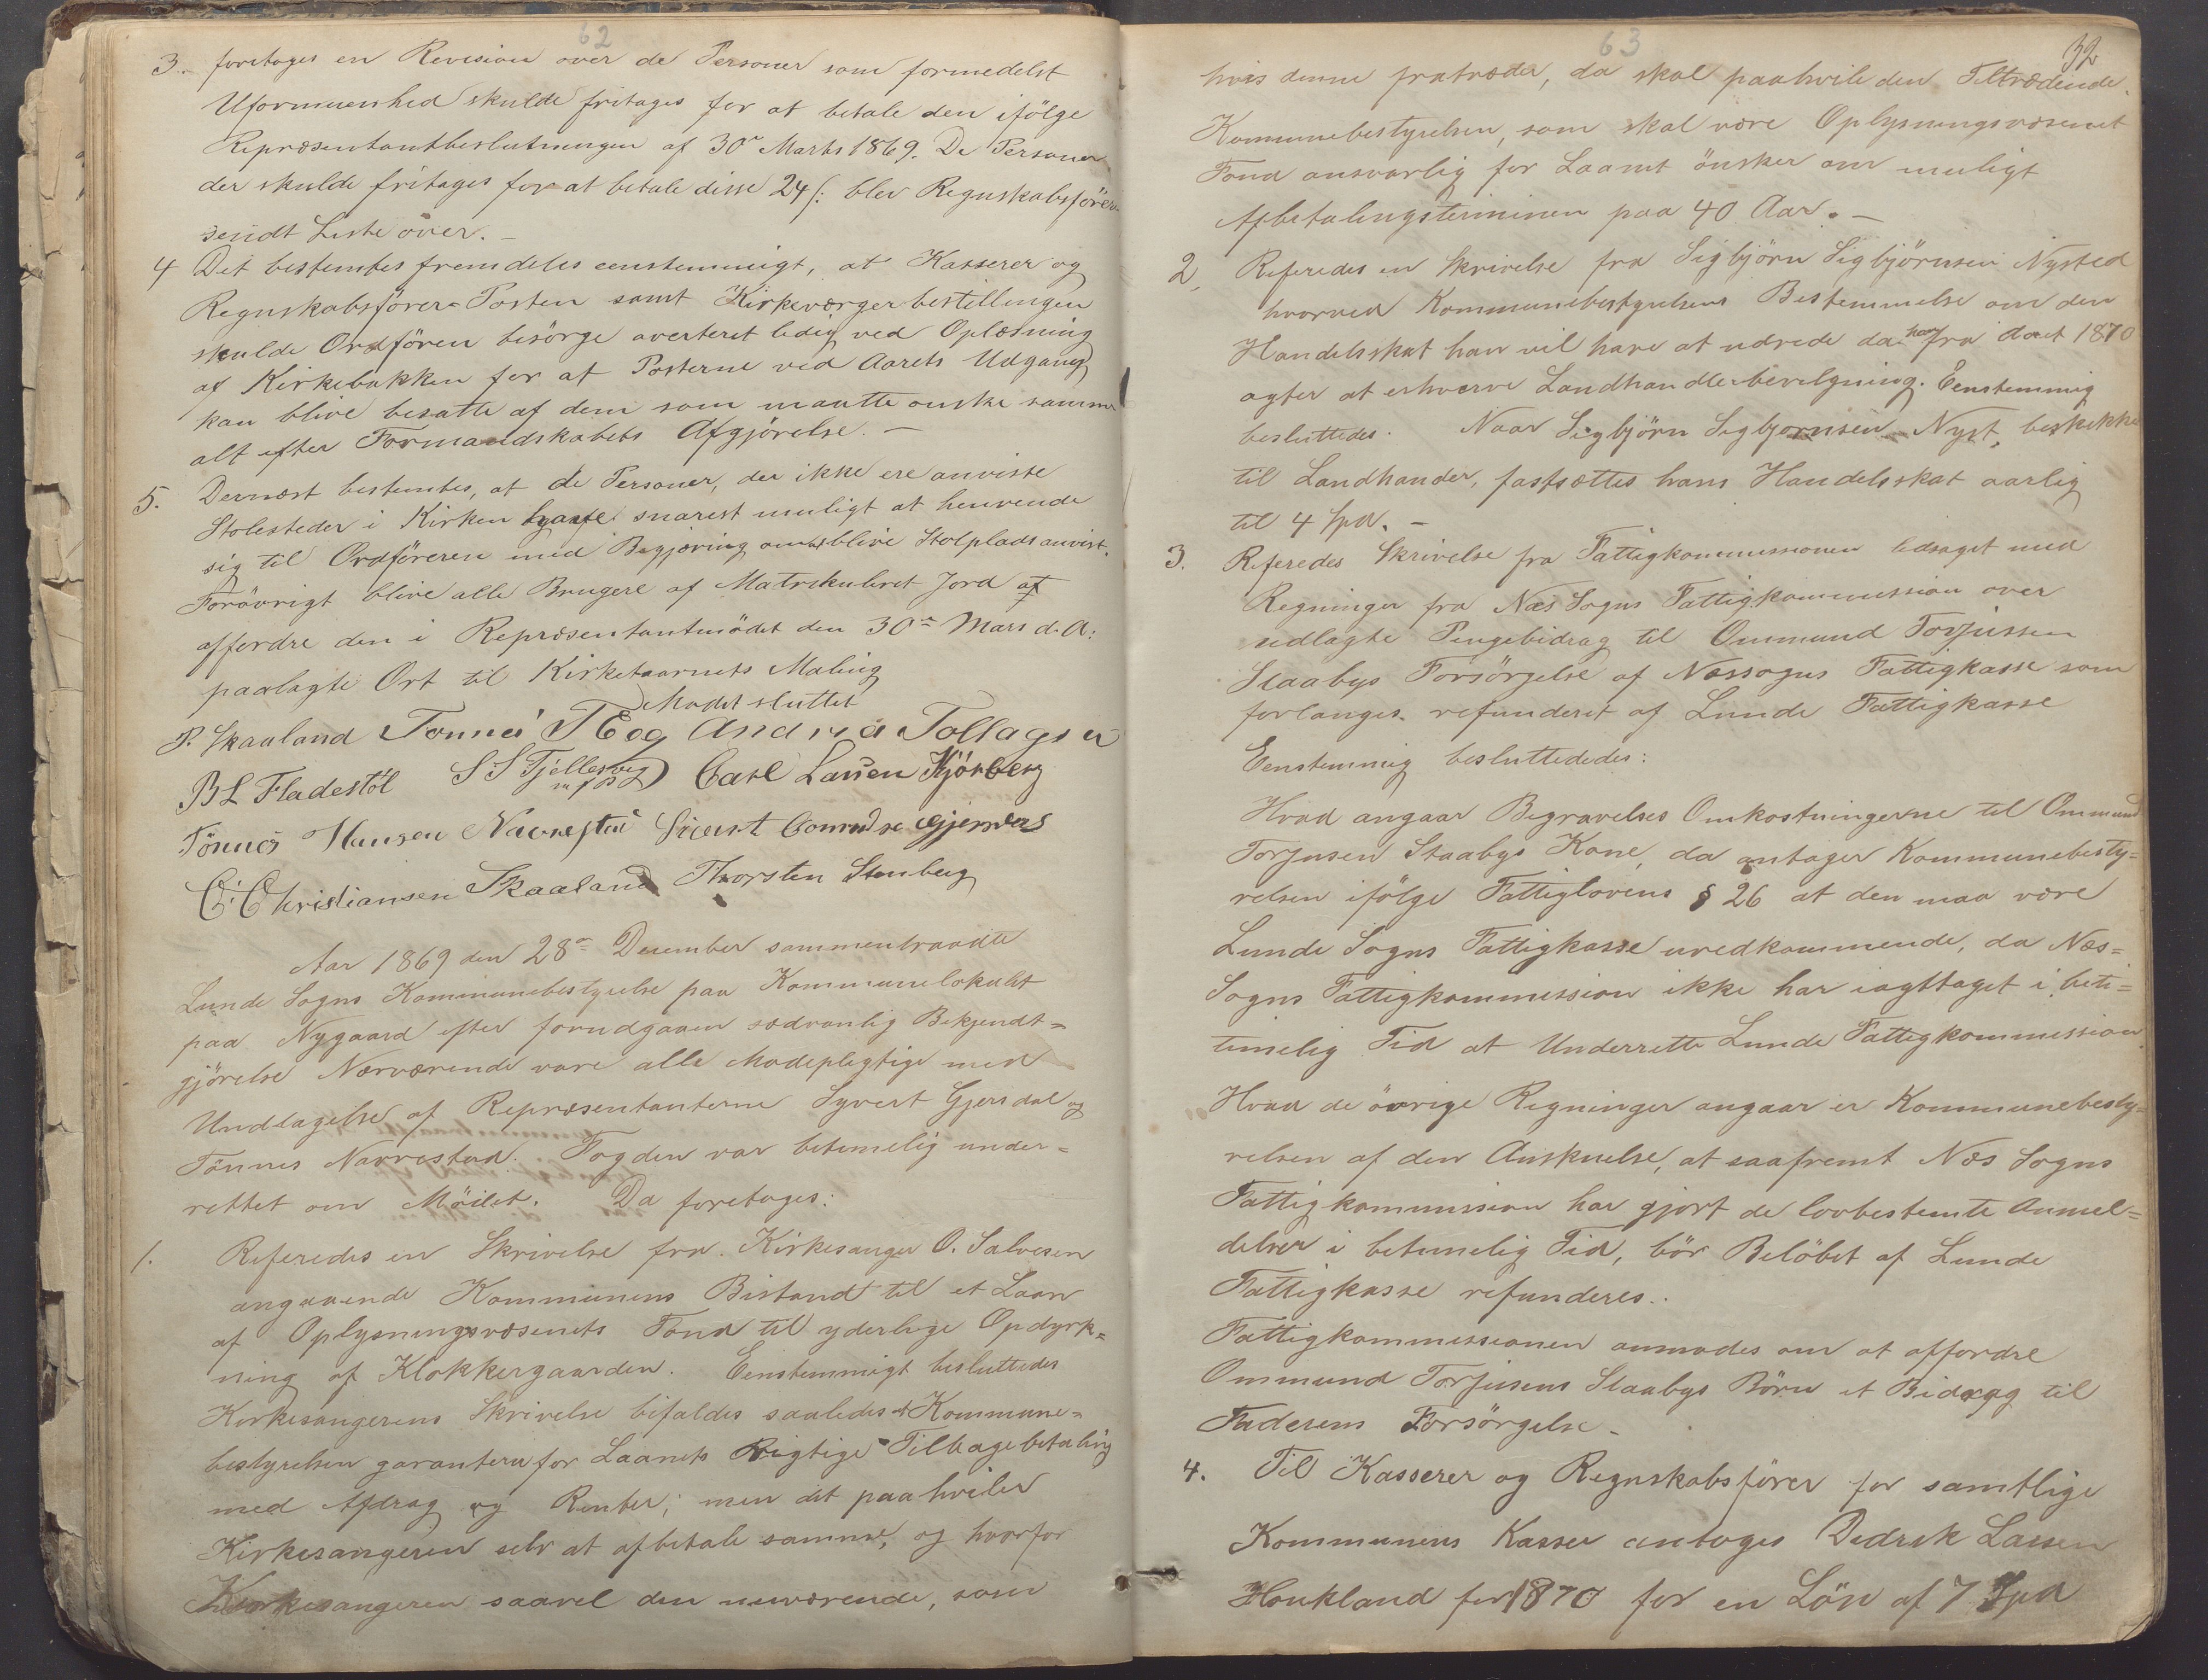 62
3. foretages en Revision over de Personer som formedelst
Uformuenhed skulde fritages for at betale den ifölge
Repræsentantbeslutningen af 30te Marts 1869. De Personer
der skulde fritages for at betale disse 24 s: blev Regnskabsförer
sendt Liste over. –
4 Det bestemtes fremdeles eenstemmigt, at Kasserer og
Regnskabsförer-Posten samt Kirkeværgerbestillingen
skulde Ordfören besörge averteret ledig ved Oplæsning
af Kirkebakken for at Posterne ved Aarets Udgang
kan blive besatte af dem som maatte onske samme
alt efter Formandskabets Afgjörelse. –
5. Dernæst bestemtes, at de Personer, der ikke ere anviste
Stolesteder i Kirken snarest muligt at henvende
sig til Ordföreren med Begjæring om at blive Stolplads anvist.
Forövrigt blive alle Brugere af Matrikuleret Jord at
affordre den i Repræsentantmödet den 30te Mars d. A:
paalagte Ort til Kirketaarnets Maling
Modet sluttet
P. Skaaland Tonnes T Eeg Andrea Tollagsen
B L Fladestöl S S Fjellesvig m f P Carl Lassen Kjörberg
Tönnes Hansen Navrestad Sivert Conrudse Gjersdal
C. Christiansen Skaaland Thorsten Stenberg
Aar 1869 den 28de December sammentraadte
Lunde Sogns Kommunebestyrelse paa Kommunelokalet
paa Nygaard efter forudgaaen sædvanlig Bekjendt=
gjörelse Nærværende vare alle Modepligtige med
Undtagelse af Repræsentanterne Syvert Gjersdal og
Tönnes Navrestad. Fogden var betimelig under=
rettet om Mödet. Da foretages:
1. Referedes en Skrivelse fra Kirkesanger O. Salvesen
angaaende Kommunens Bistand til et Laan
af Oplysningsvæsenets Fond til yderlige Opdyrk=
ning af Klokkergaarden. Eenstemmigt besluttedes
Kirkesangerens Skrivelse bifaldes saaledes at Kommune=
bestyrelsen garanterer for Laanets Rigtige Tilbagebetaling
med Afdrag og Renter; men det paahviler
Kirkesangeren selv at afbetale samme, og hvorfor
Kirkesangeren saavel den nuværende, som
63
32
hvis denne fratræder, da skal paahvile den Tiltrædende.
Kommunebestyrelsen, som skal være Oplysningsvæsenet
Fond ansvarlig for Laanet önsker om muligt
Afbetalingsterminen paa 40 Aar. –
2, Referedes en Skrivelse fra Sigbjörn Sigbjörnsen Nysted
hvorved Kommunebestyrelsens Bestemmelse om den
Handelsskat han vil have at udrede da han fra Aaret 1870
agter at erhverve Landhandlerbevilgning. Eenstemmig
besluttedes: Naar Sigbjörn Sigbjornsen Nyst. beskikkes
til Landhander, fastsættes hans Handelsskat aarlig
til 4 Spd. –
3. Referedes Skrivelse fra Fattigkommissionen ledsaget med
Regninger fra Næs Sogns Fattigkommission over
udlagte Pengebidrag til Ommund Torjussen
Staabys Forsörgelse af Næssogns Fattigkasse som
forlanges refunderet af Lunde Fattigkasse
Eenstemmig besluttededes:
Hvad angaar Begravelses Omkostningerne til Ommund
Torjusen Staabys Kone, da antager Kommunebesty=
relsen ifölge Fattiglovens § 26 at den maa være
Lunde Sogns Fattigkasse uvedkommende, da Næs=
Sogns Fattigkommission ikke har iagttaget i beti=
timelig Tid at Underrette Lunde Fattigkommission.
Hvad de övrige Regninger angaar er Kommunebesty=
relsen af den Anskuelse, at saafremt Næs Sogns
Fattigkommission har gjort de lovbestemte Anmel=
delser i betimelig Tid, bör Belöbet af Lunde
Fattigkasse refunderes.
Fattigkommissionen anmodes om at affordre
Ommund Torjusens Staabys Börn et Bidrag til
Faderens Forsörgelse –
4. Til Kasserer og Regnskabsförer for samtlige
Kommunens Kasser antages Didrik Lassen
Houkland for 1870 for en Lön af 7 Spd